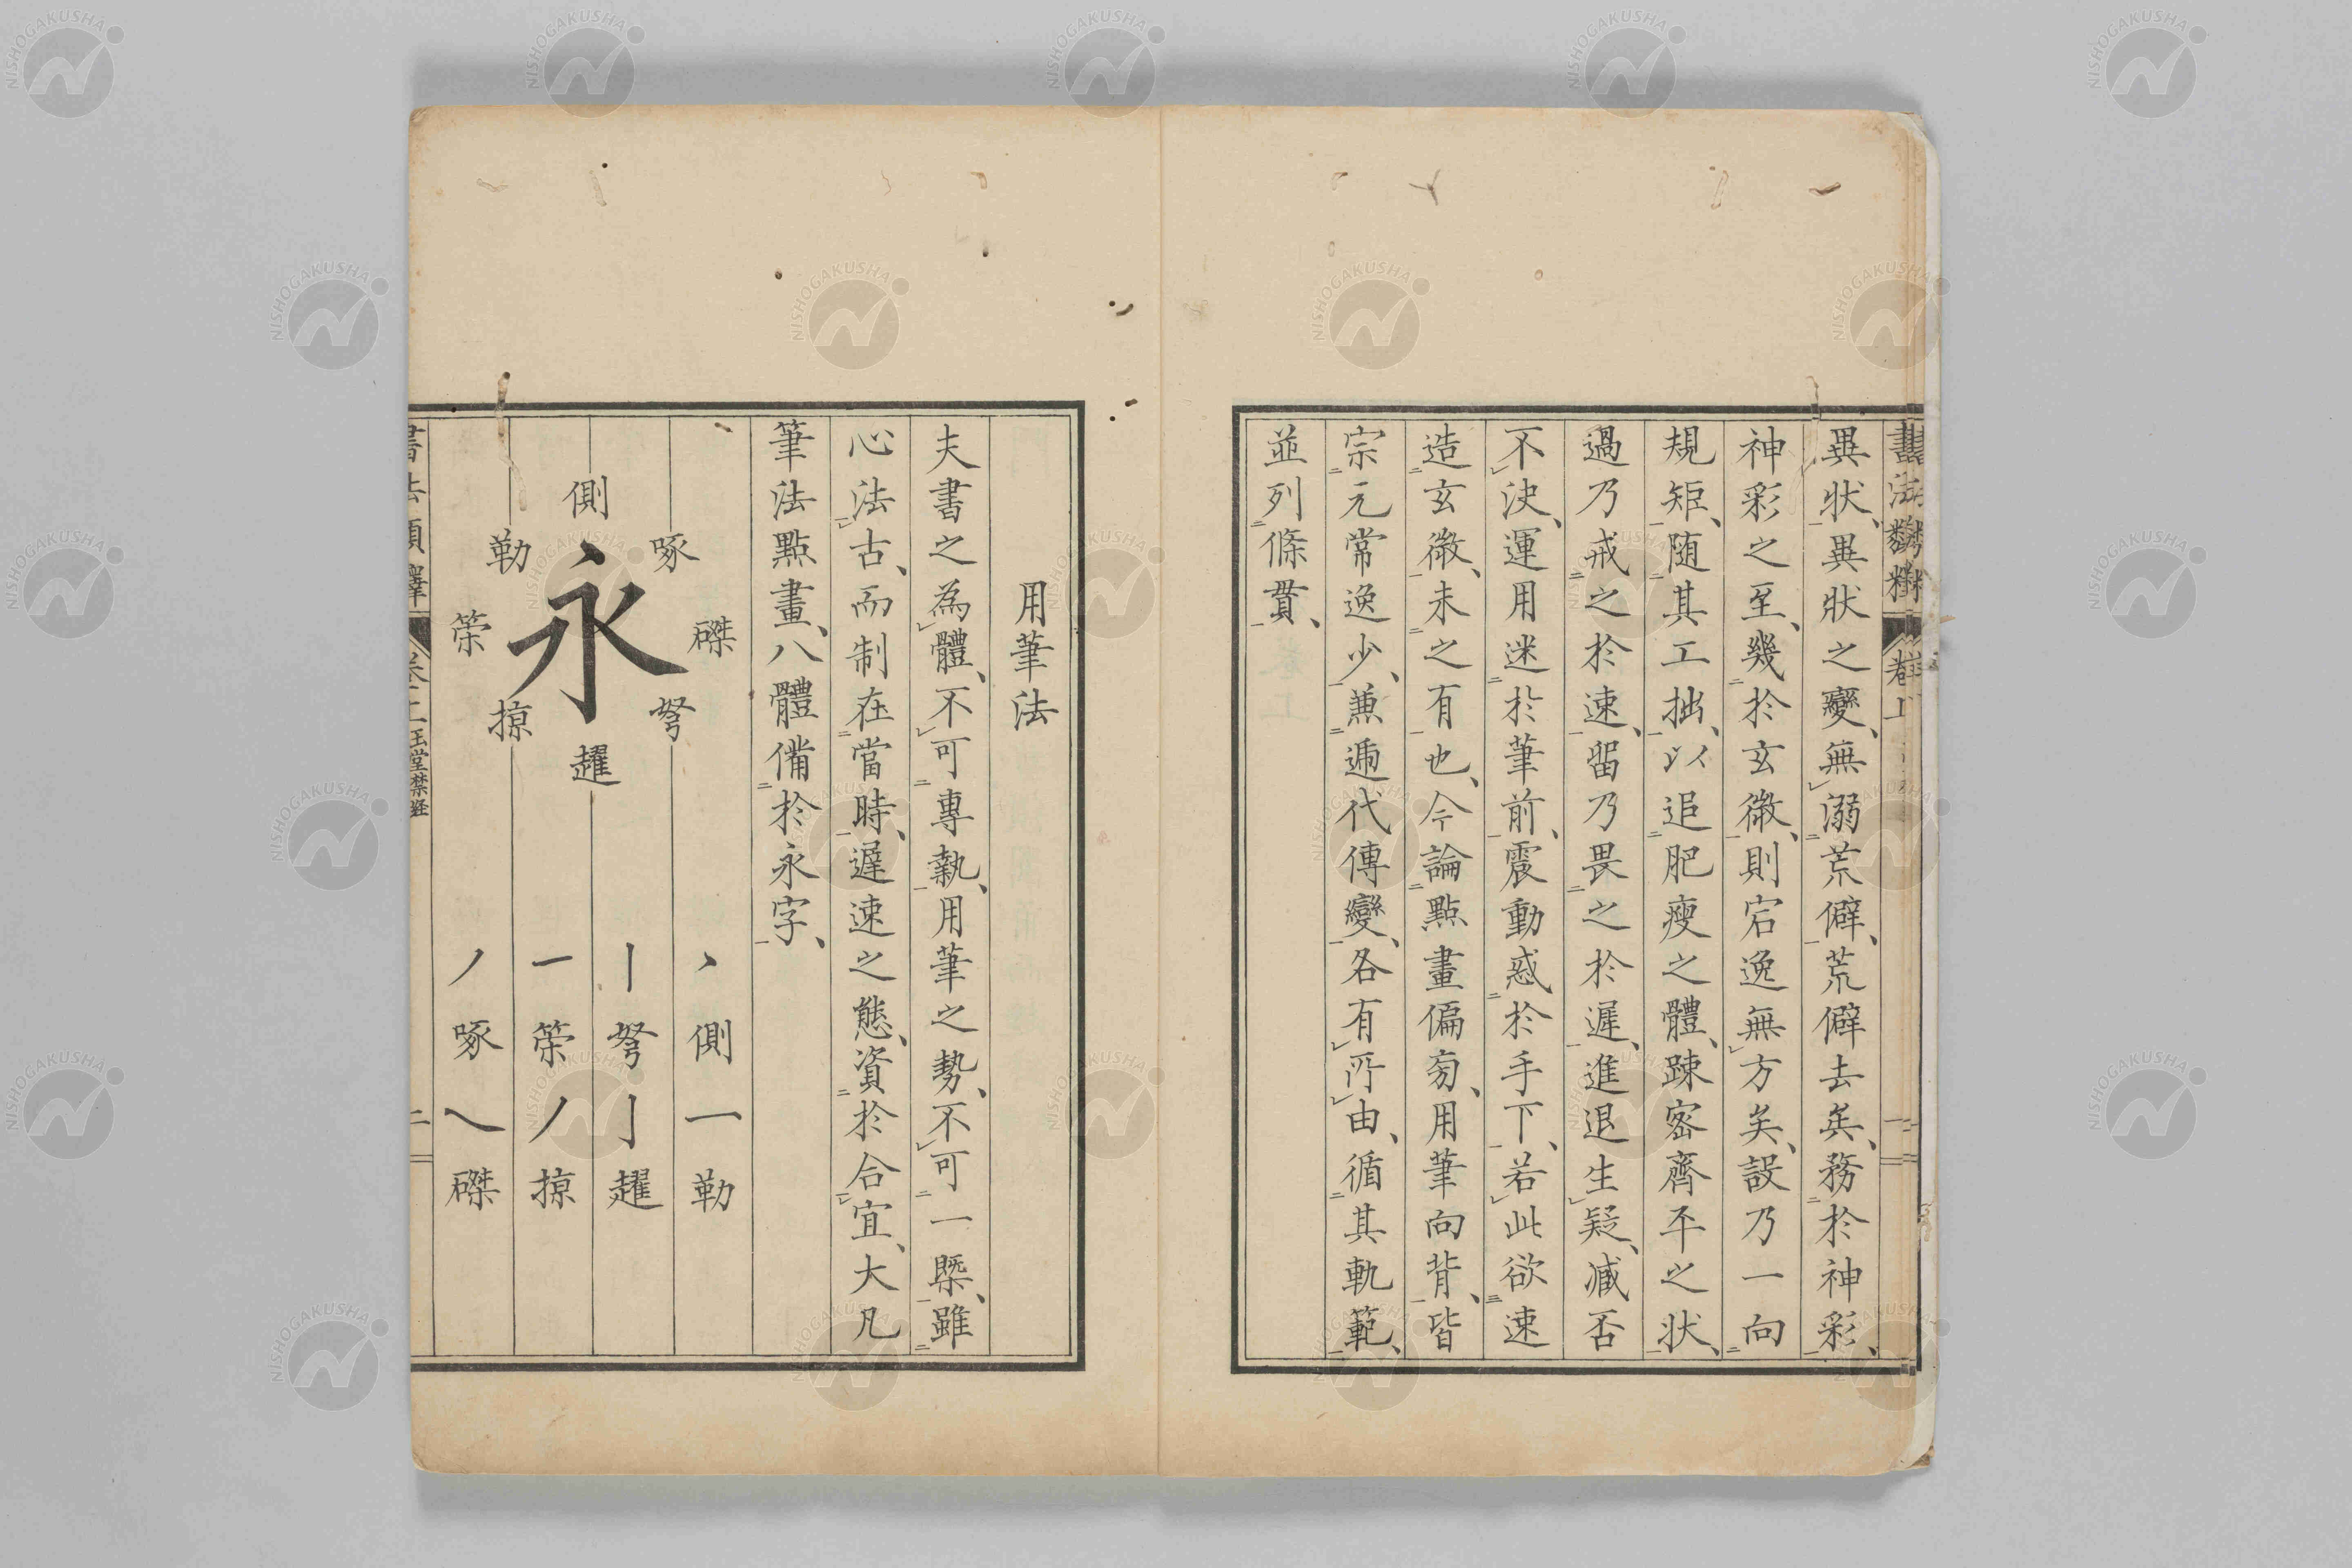 異狀、異狀之變、無溺荒僻、荒僻去矣、務於神彩、
神彩之至、幾於玄微、則宕逸無方矣、設乃一向
規矩、随其工拙、以追肥瘦之體、踈密齊平之狀、
過乃戒之於速、留乃畏之於遲、進退生疑、臧否
不決、運用迷於筆前、震動惑於手下、若此欲速
造玄微、未之有也、今論點畫偏旁、用筆向背、皆
宗元常逸少、兼遍代傳變、各有所由、循其軌範、
並列條貫、
用筆法
夫書之為體、不可專執、用筆之勢、不可一槩、雖
心法古、而制在當時、遲速之態、資於合宜、大凡
筆法點畫、八體備於永字、
側
啄
勒
永
磔
策
弩
掠
趯
丶側一勒
丨弩亅趯
一策丿掠
丿啄乀磔
書法類釋 卷上 玉堂禁経 二
NISHOGAKUSHA